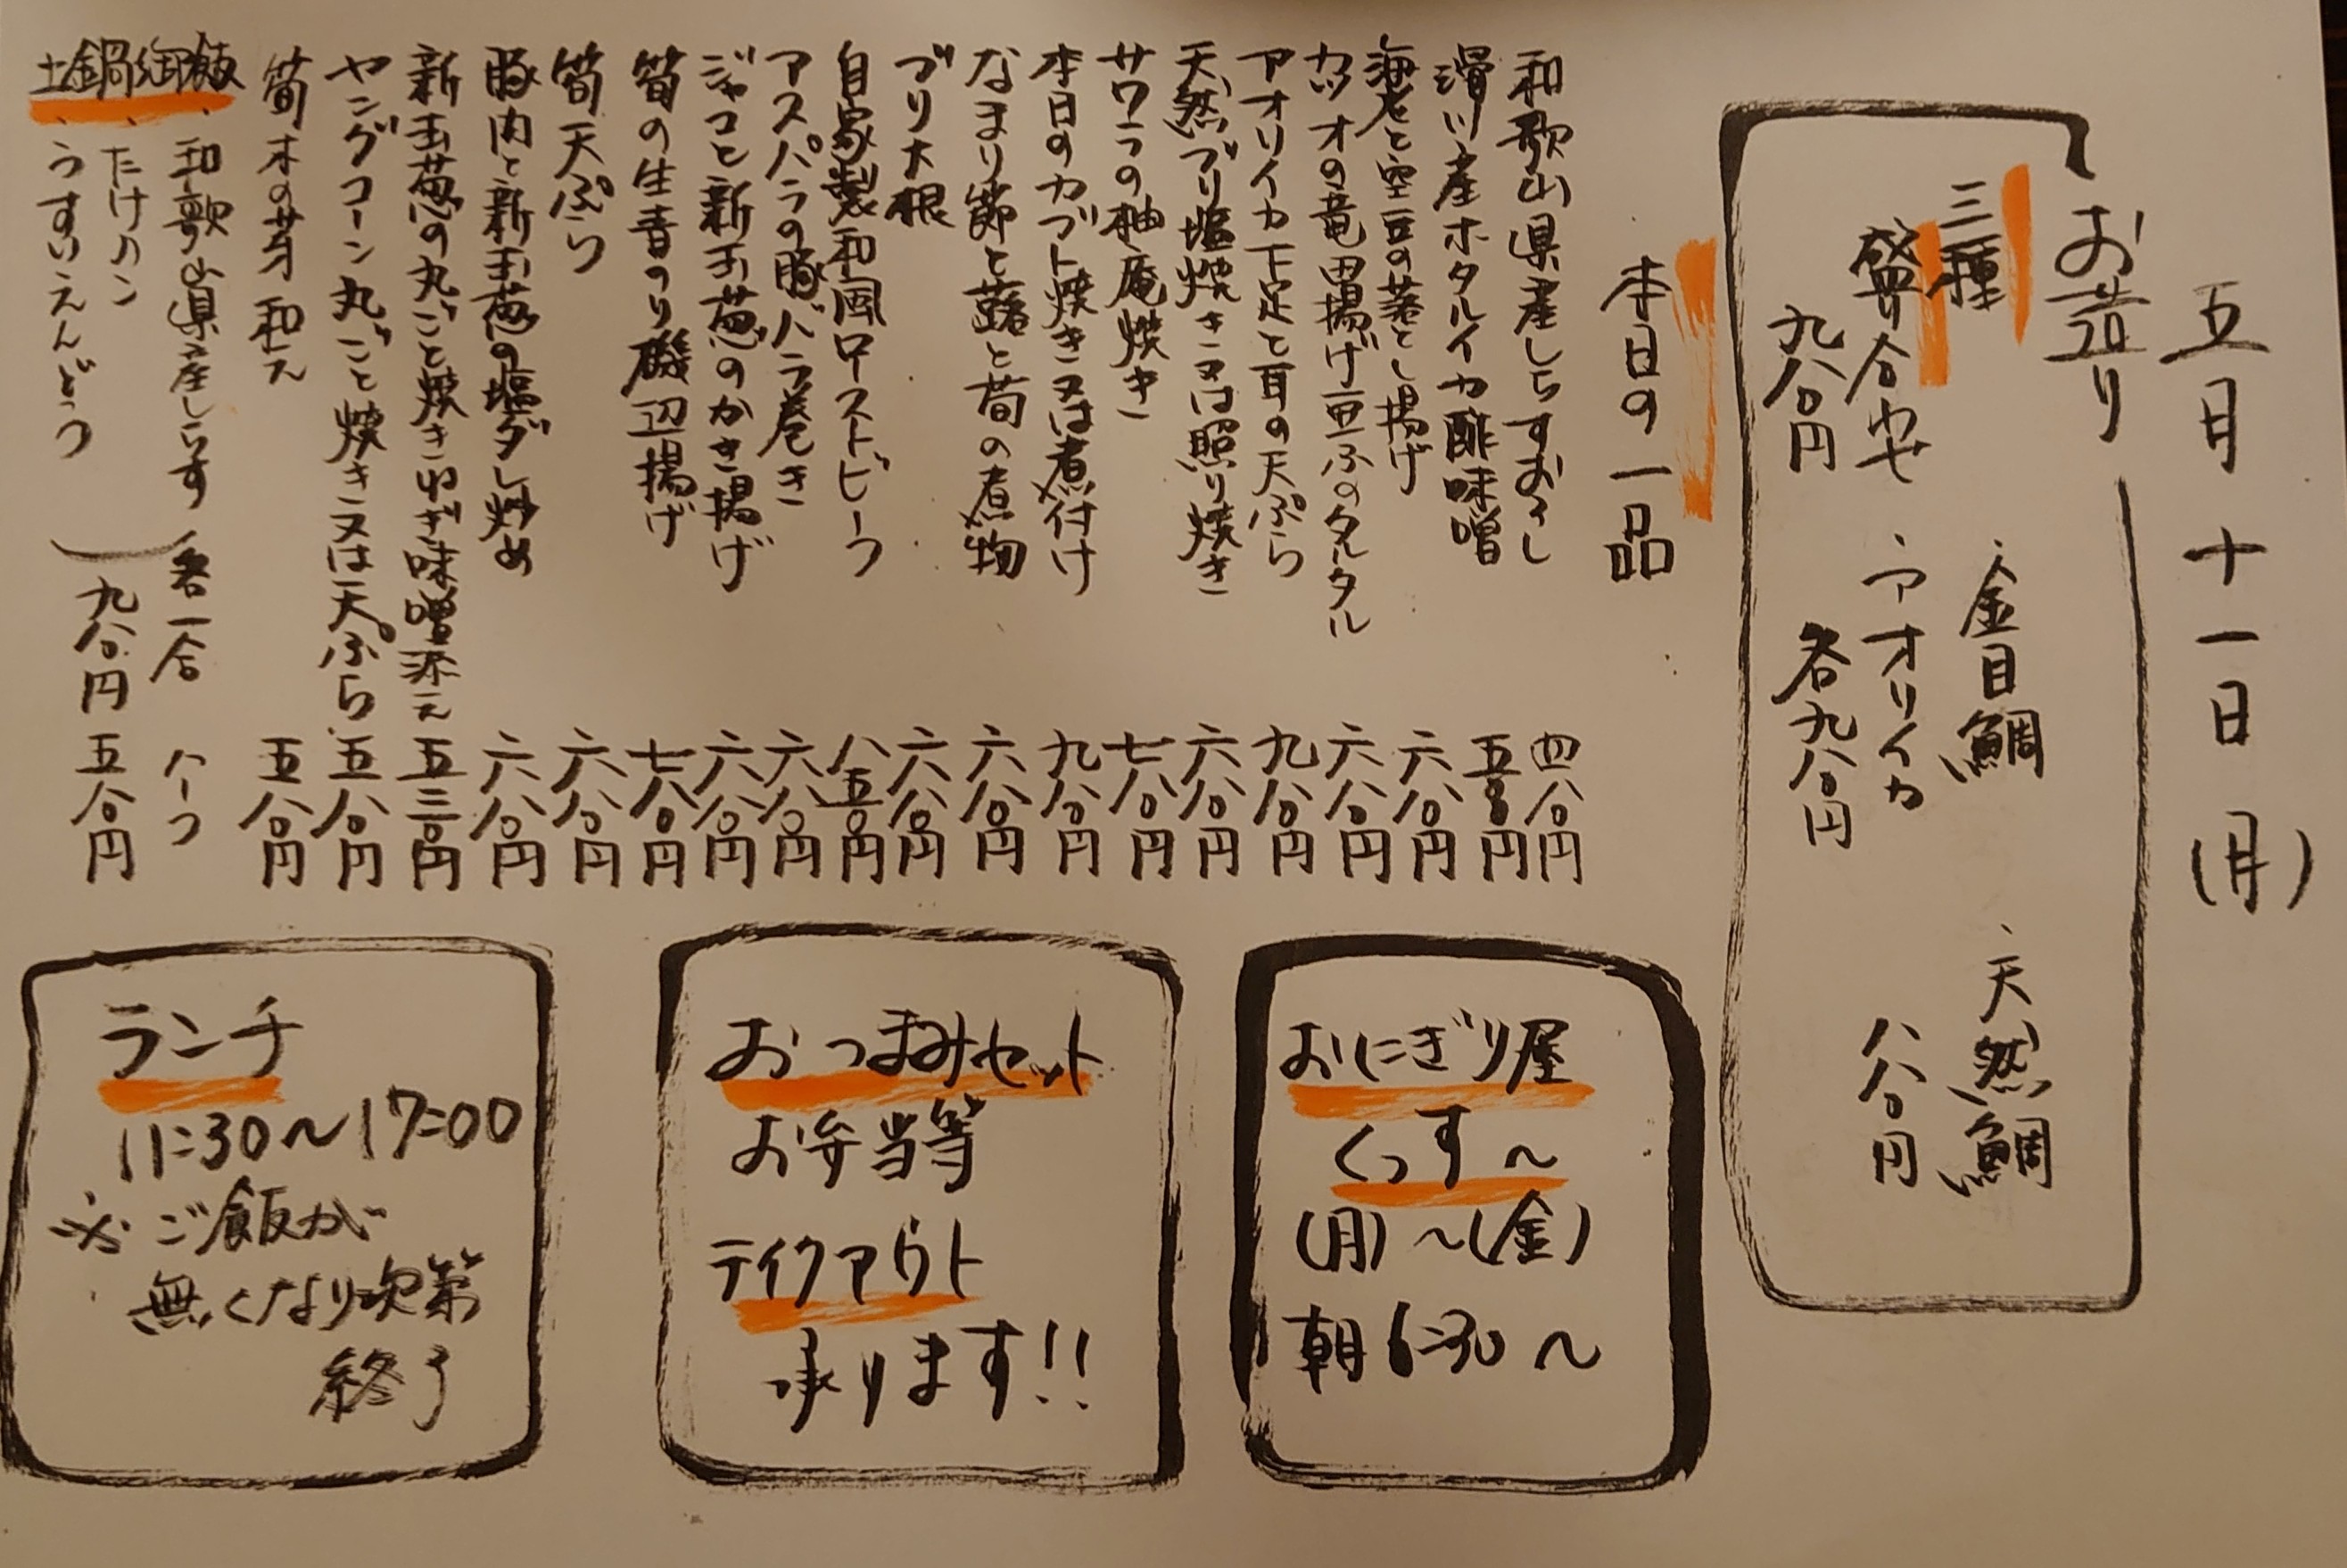 五月十一日(月)
お造り
三種
盛り合わせ
九八〇円
、金目鯛
、アオリイカ
各九八〇円
、天然鯛
八八〇円
本日の一品
和歌山県産しらすおろし 四八〇円
滑川産ホタルイカ酢味噌 五八〇円
海老と空豆の落とし揚げ 六八〇円
カツオの竜田揚げ豆ふのタルタル 六八〇円
アオリイカ下足と耳の天ぷら 九八〇円
天然ブリ塩焼き又は照り焼き 六八〇円
サワラの柚庵焼き 七八〇円
本日のカブト焼き又は煮付け 九八〇円
なまり節と蕗と筍の煮物 六八〇円
ブリ大根 六八〇円
自家製和風ローストビーフ 八五〇円
アスパラの豚バラ巻き 六八〇円
ジャコと新玉葱のかき揚げ 六八〇円
筍の生青のり磯辺揚げ 七八〇円
筍天ぷら 六八〇円
豚肉と新玉葱の塩ダレ炒め 六八〇円
新玉葱の丸ごと焼きねぎ味噌添え 五三〇円
ヤングコーン丸ごと焼き又は天ぷら 五八〇円
筍木の芽和え 五八〇円
土鍋御飯
、和歌山県産しらす
、たけノコ
、うすいえんどう
各一合 九八〇円
ハーフ 五八〇円
おにぎり屋
くっす〜
(月)〜(金)
朝6:30〜
おつまみセット
お弁当等
テイクアウト
承ります!!
ランチ
11:30〜17:00
※ご飯が
無くなり次第
終了